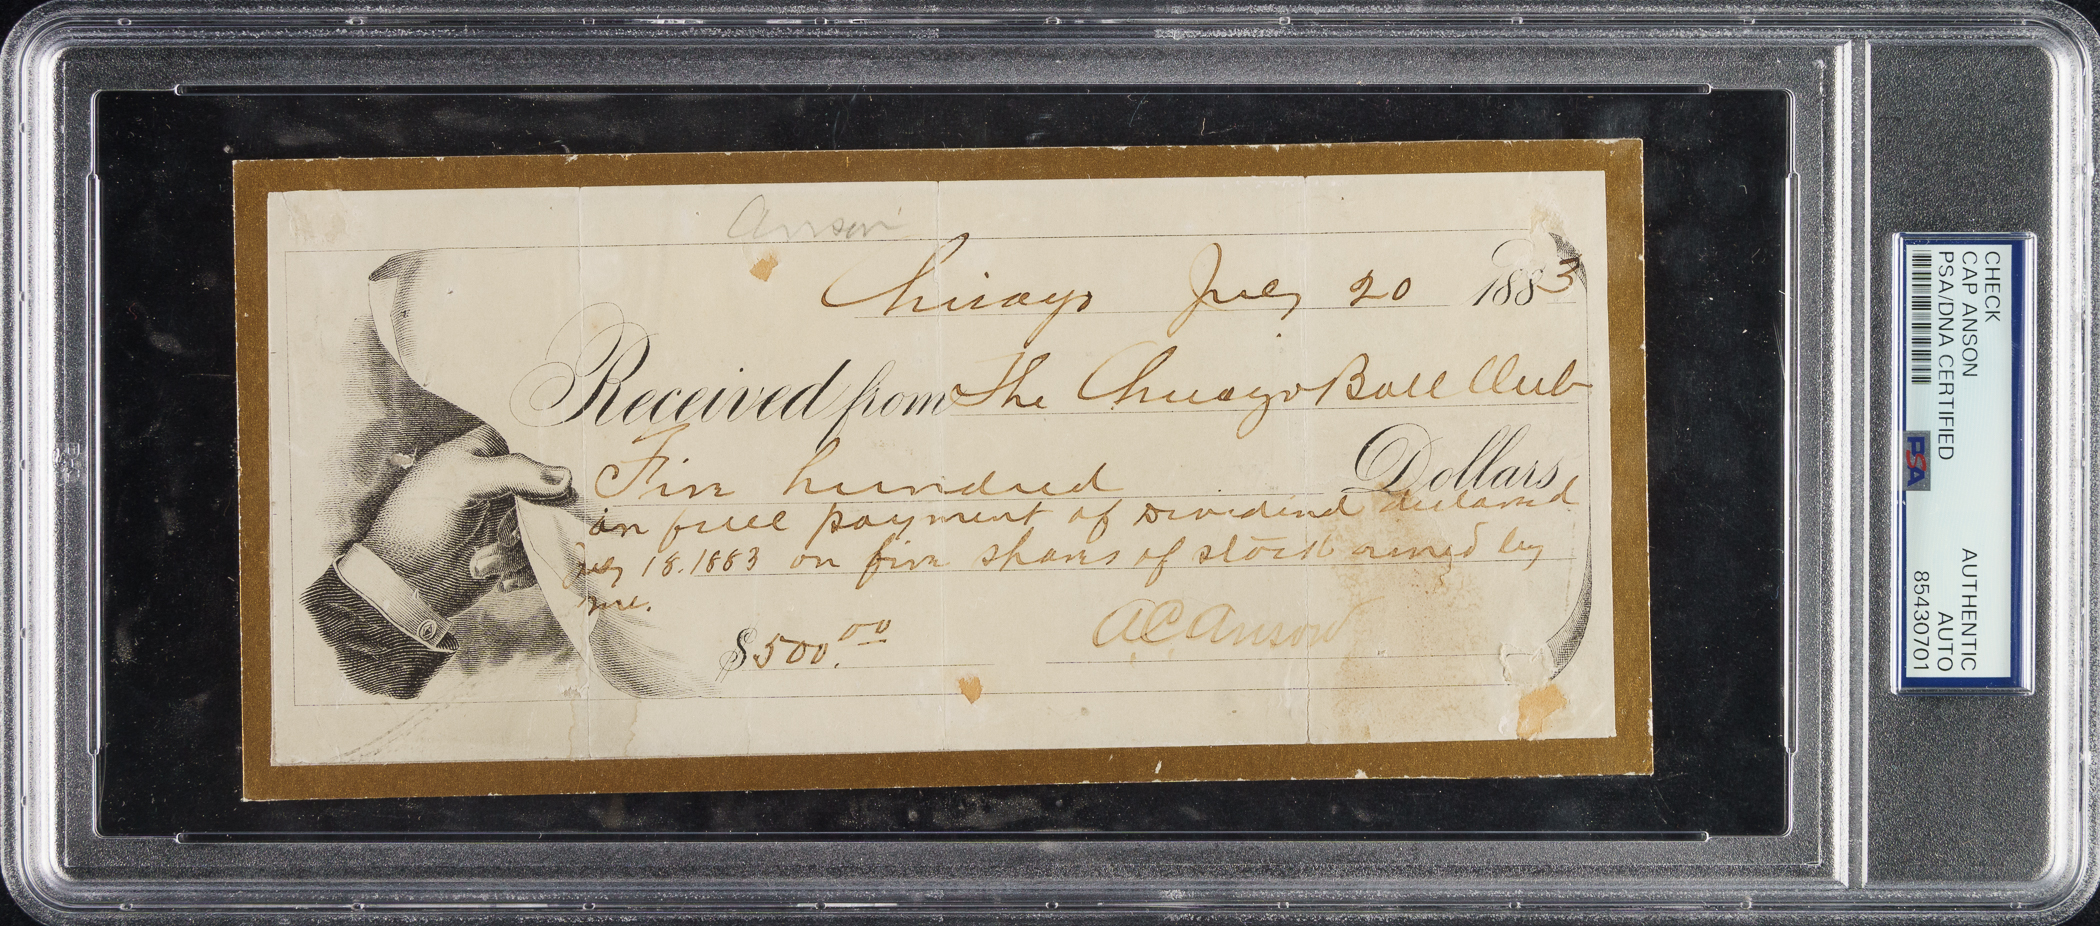 Anson
Chicago July 20 1883
Received from The Chicago Ball Club
Five hundred Dollars
in full payment of Dividend declared
July 18. 1883 on five shares of stock owned by
me.
$500.00 A C Anson
CHECK
CAP ANSON
PSA/DNA CERTIFIED
AUTHENTIC
AUTO
85430701
PSA